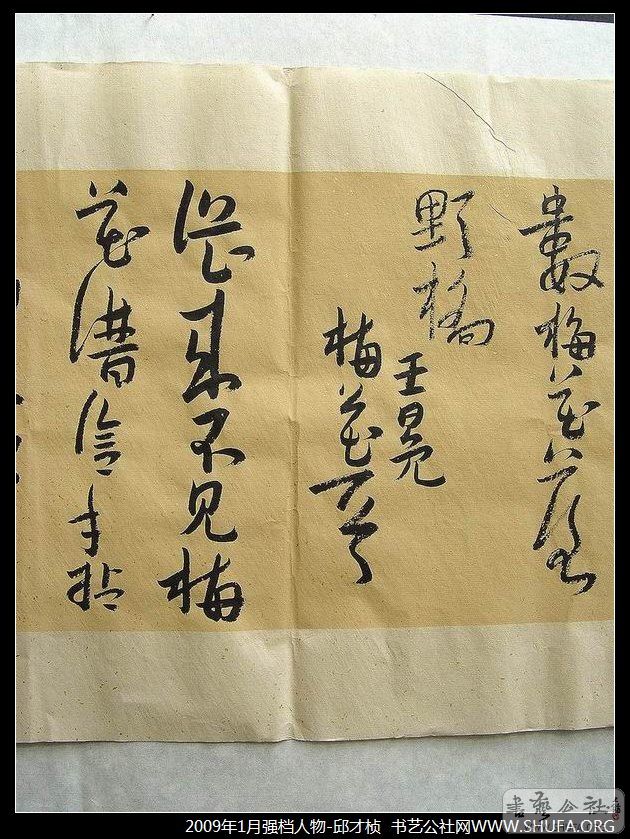 數梅花落
野橋
王冕
梅花
從來不見梅
花譜信手拈
書藝公社
2009年1月强档人物-邱才桢 书艺公社网WWW.SHUFA.ORG